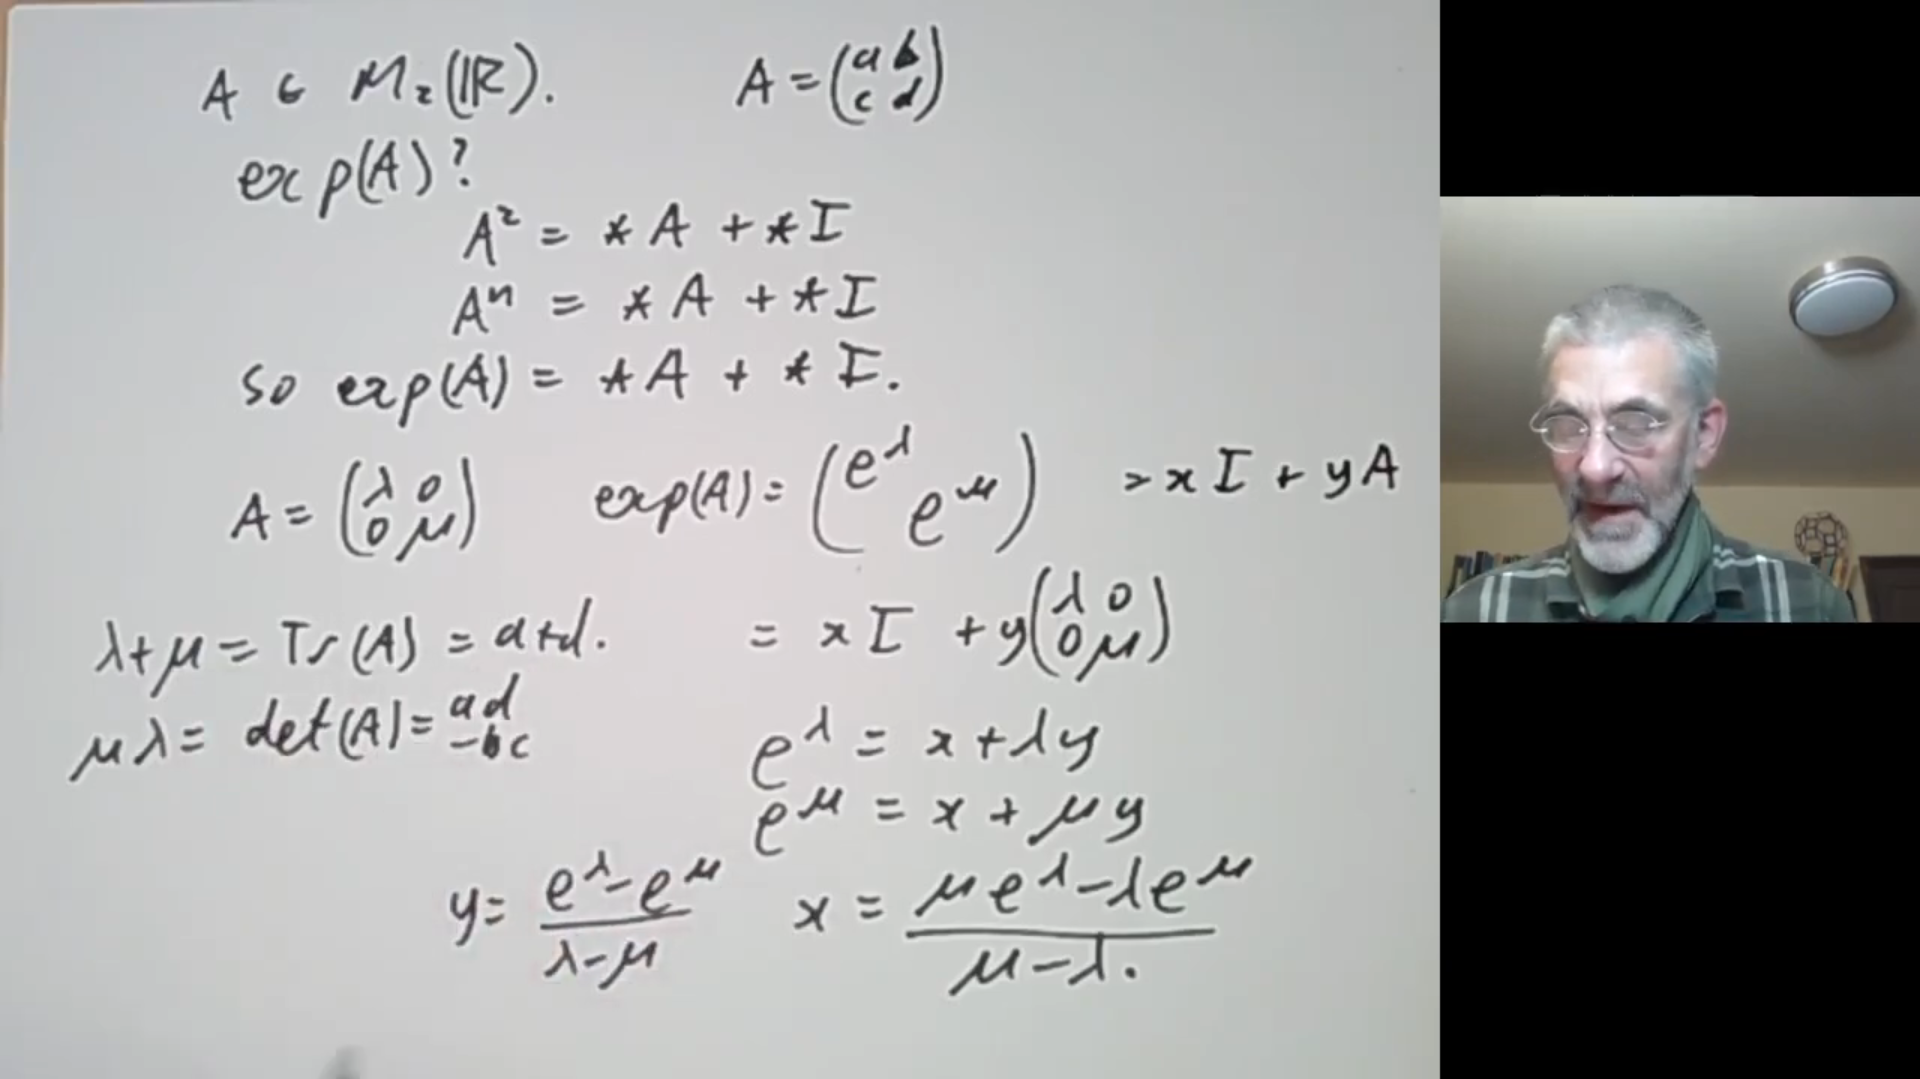 A ∈ M₂(ℝ). A = (a b / c d)
exp(A)?
A² = *A + *I
Aⁿ = *A + *I
so exp(A) = *A + *I.
A = (λ 0 / 0 μ) exp(A) = (e^λ / e^μ) = xI + yA
λ+μ = Tr(A) = a+d. = xI + y(λ 0 / 0 μ)
μλ = det(A) = ad -bc
e^λ = x + λy
e^μ = x + μy
y = (e^λ - e^μ)/(λ - μ) x = (μe^λ - λe^μ)/(μ - λ).